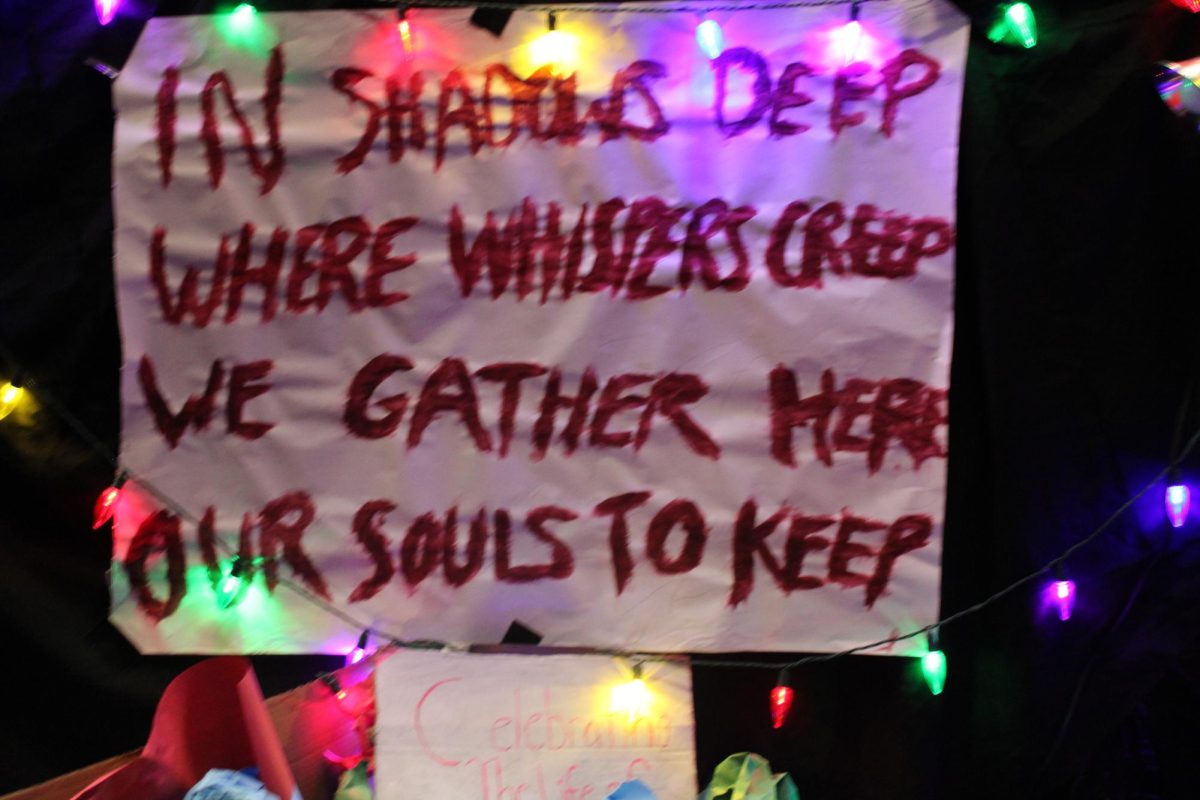 IN SHADOWS DEEP
WHERE WHISPERS CREEP
WE GATHER HERE
OUR SOULS TO KEEP
Celebrating
The Life of